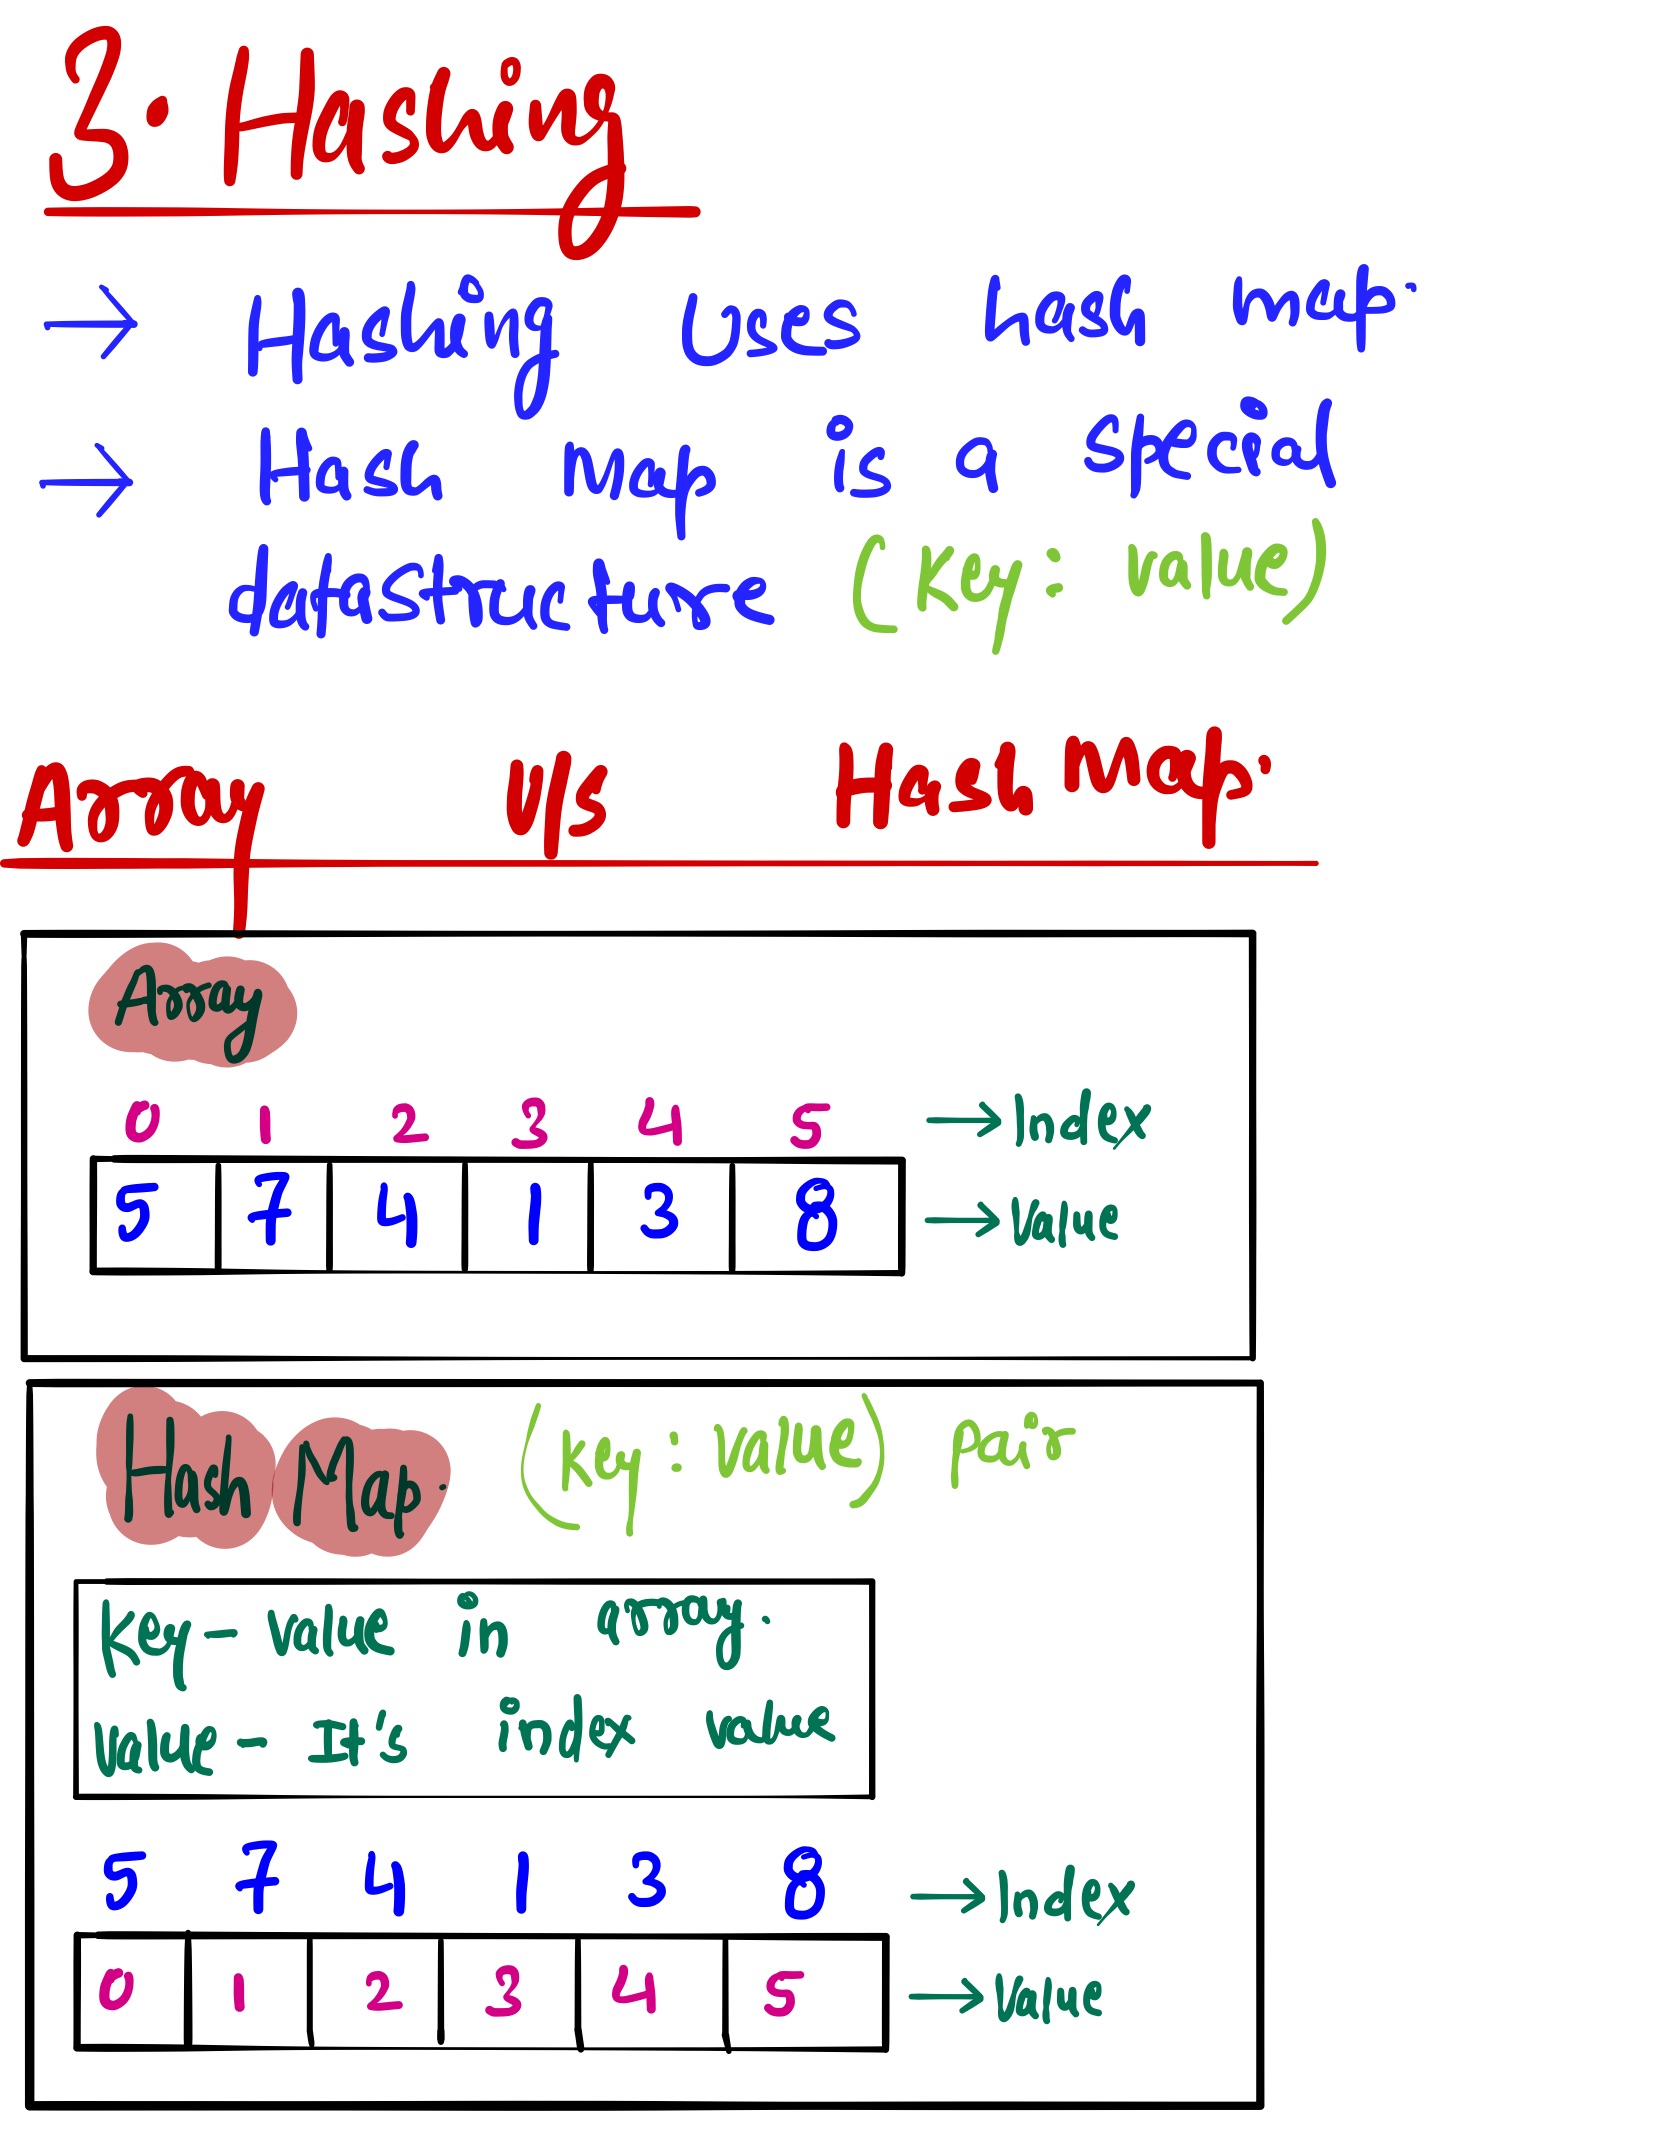 3. Hashing
→ Hashing uses hash map.
→ Hash Map is a special
datastructure (Key: value)
Array v/s Hash Map.
Array
0 1 2 3 4 5 → Index
5 7 4 1 3 8 → Value
Hash Map. (Key: value) pair
Key - value in array.
value - It's index value
5 7 4 1 3 8 → Index
0 1 2 3 4 5 → Value